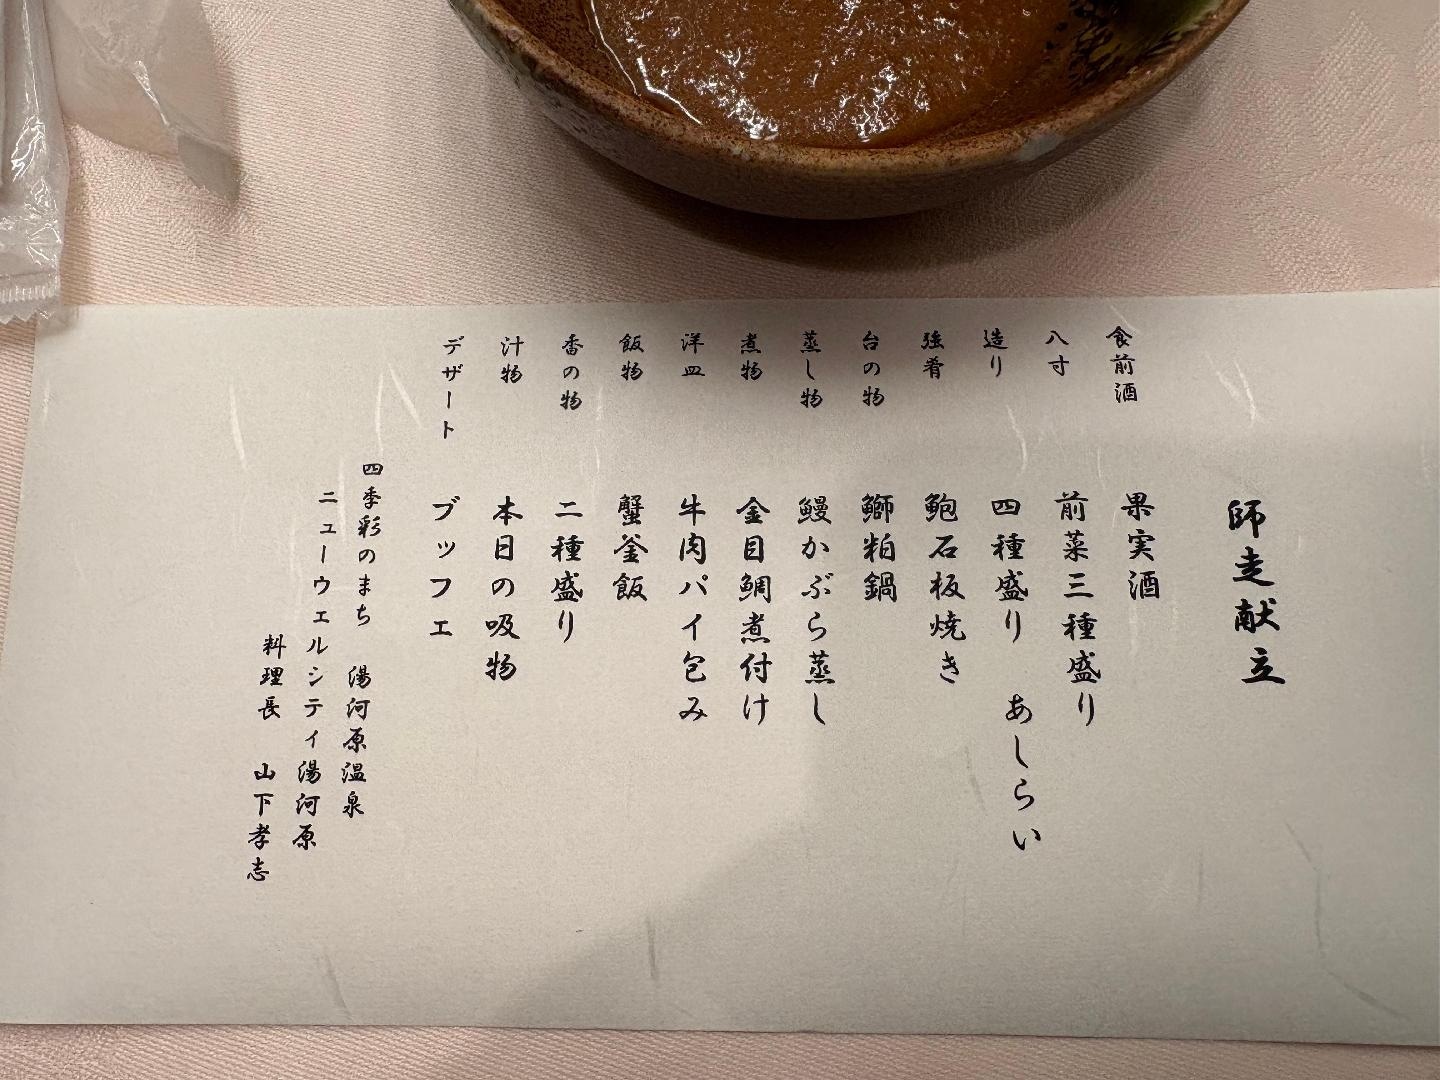 師走献立
食前酒 果実酒
八寸 前菜三種盛り
造り 四種盛り あしらい
強肴 鮑石板焼き
台の物 鰤粕鍋
蒸し物 鰻かぶら蒸し
煮物 金目鯛煮付け
洋皿 牛肉パイ包み
飯物 蟹釜飯
香の物 二種盛り
汁物 本日の吸物
デザート ブッフェ
四季彩のまち 湯河原温泉
ニューウェルシティ湯河原
料理長 山下孝志